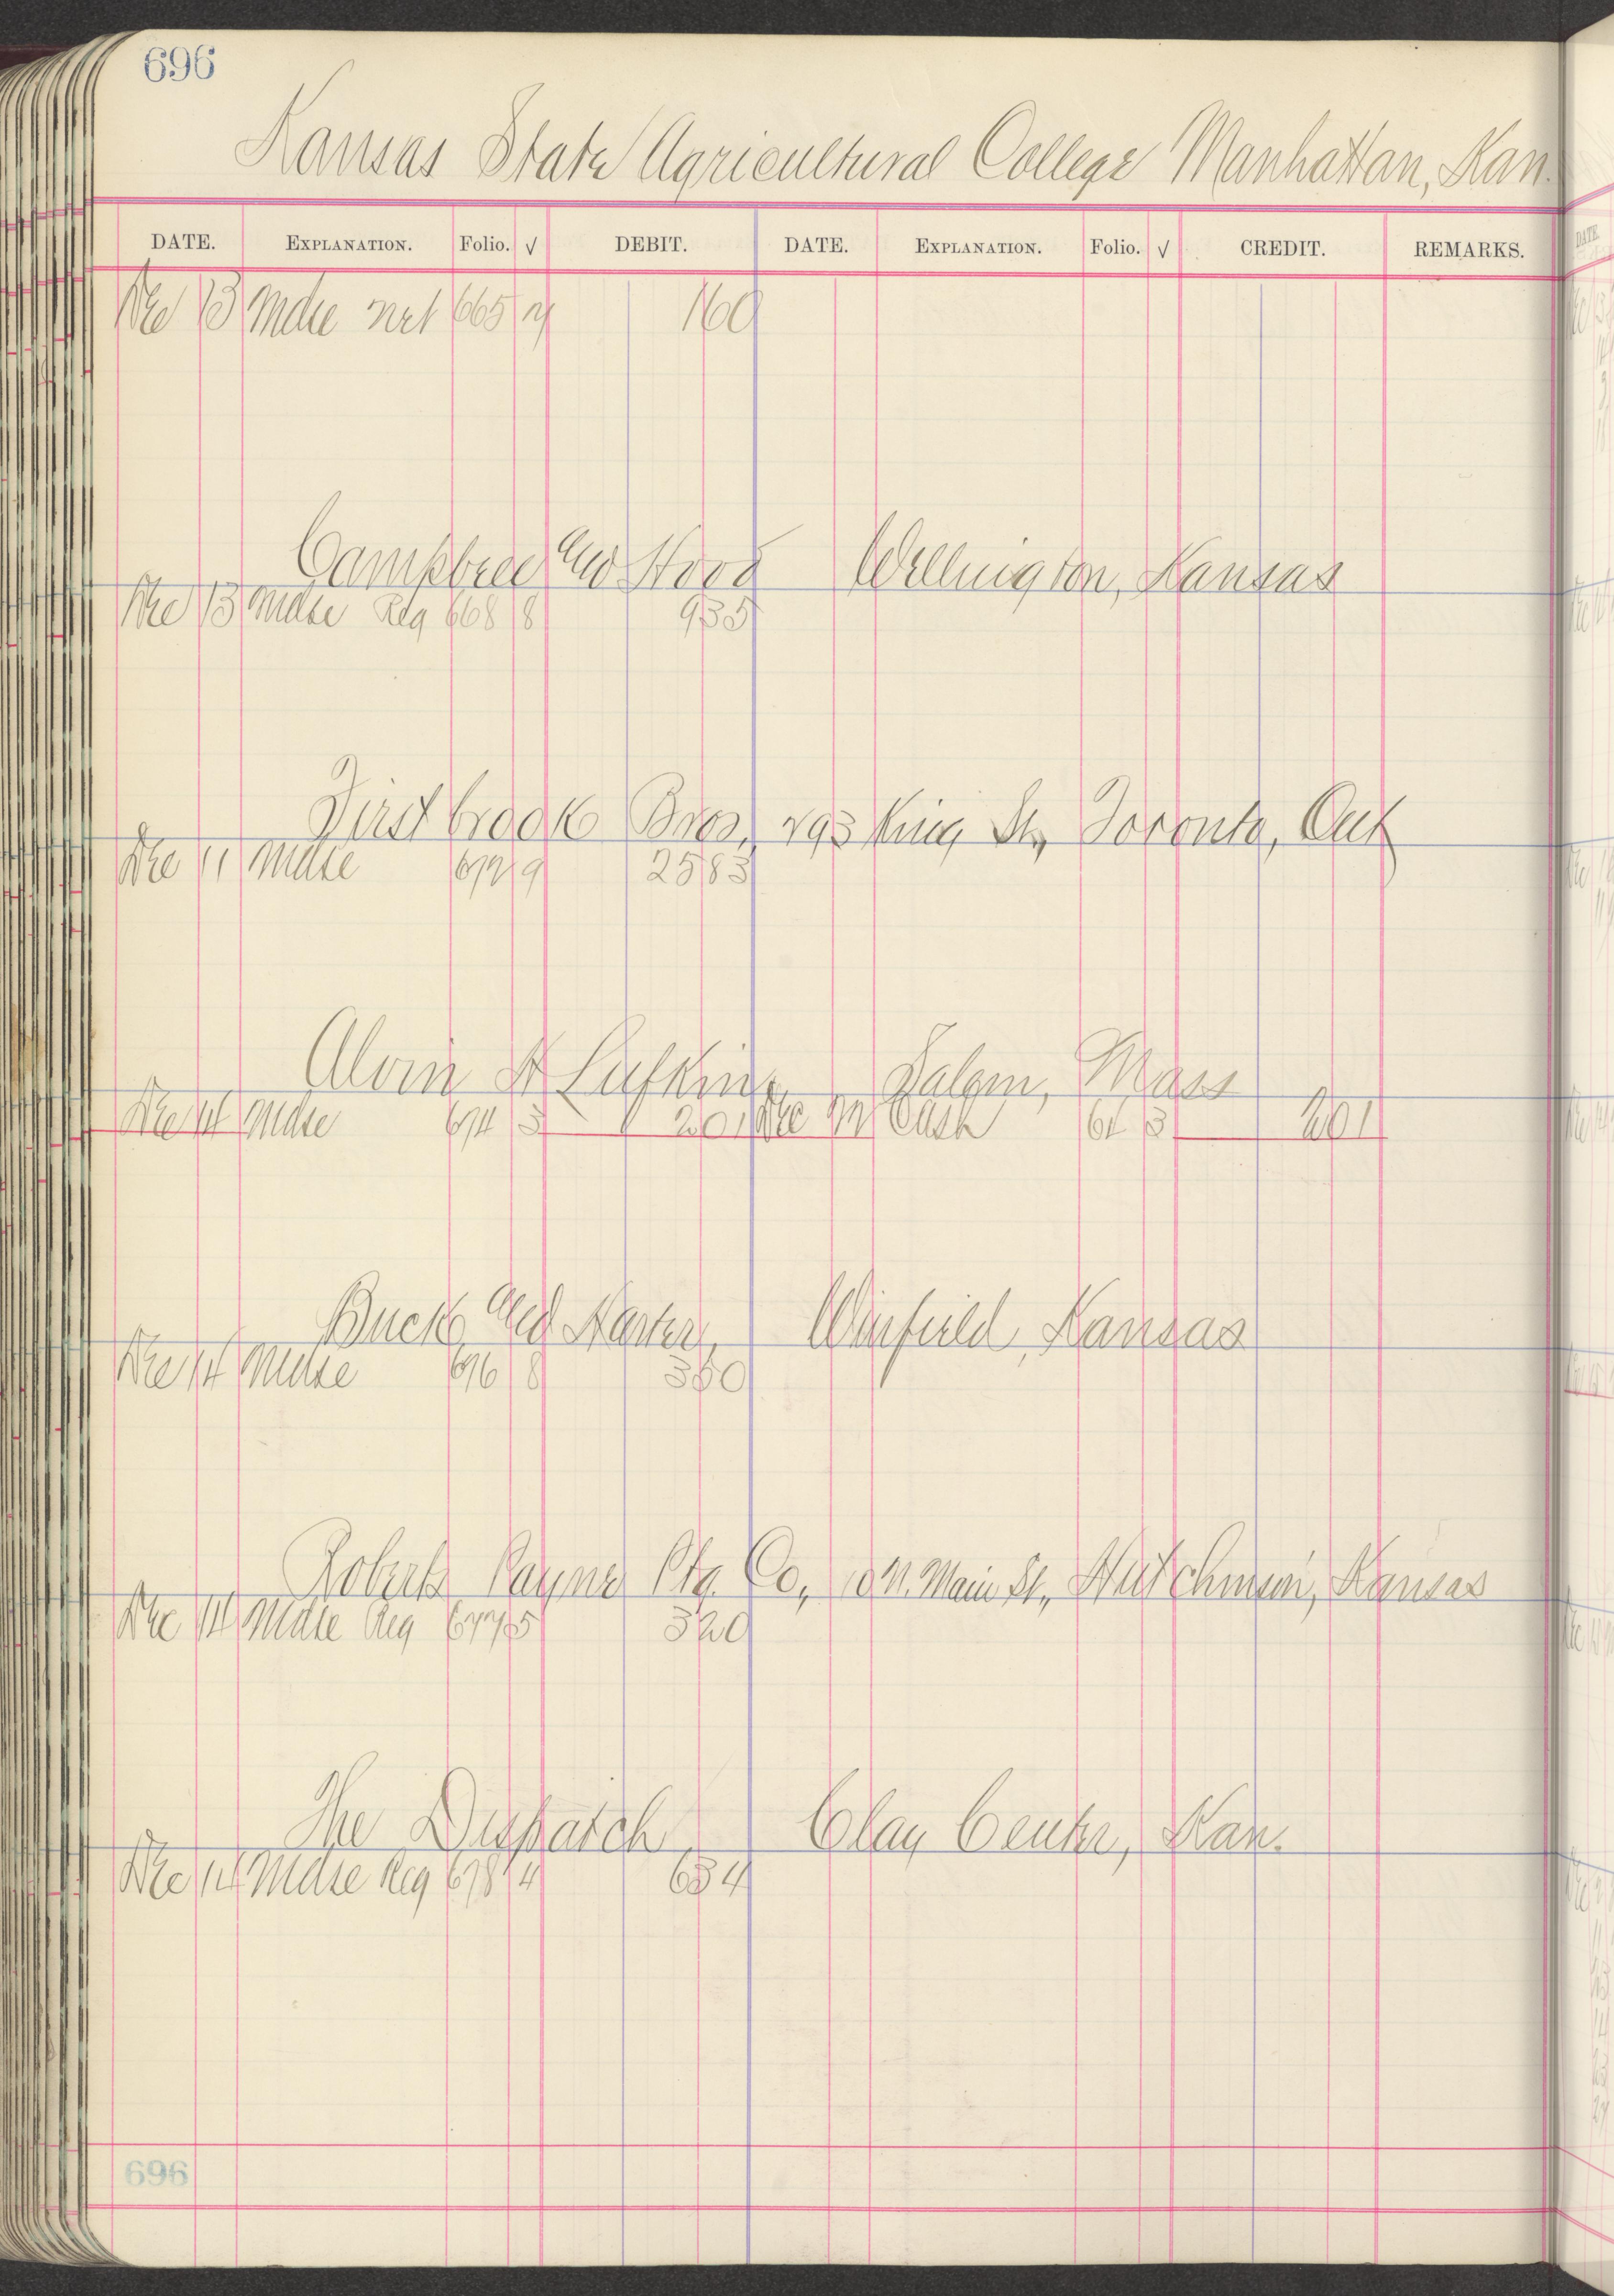 696
Kansas State Agricultural College Manhattan, Kan.
DATE. EXPLANATION. Folio. √ DEBIT. DATE. EXPLANATION. Folio. √ CREDIT. REMARKS.
Dec 13 Mdse net 665 160
Campbell and Hood Wellington, Kansas
Dec 13 Mdse Reg 668 8 935
Firstbrook Bros, 293 King St, Toronto, Ont
Dec 11 Mdse 672 9 2583
Alvin A Lufkin, Salem, Mass
Dec 14 Mdse 674 3 201 Dec Cash 61 3 201
Buck and Winfield, Kansas
Dec 14 Mdse 676 8 350
Roberts Payne Ptg. Co, 10 N. Main St., Hutchinson, Kansas
Dec 14 Mdse Reg 677 5 320
The Dispatch Clay Center, Kan.
Dec 14 Mdse Reg 678 4 634
696